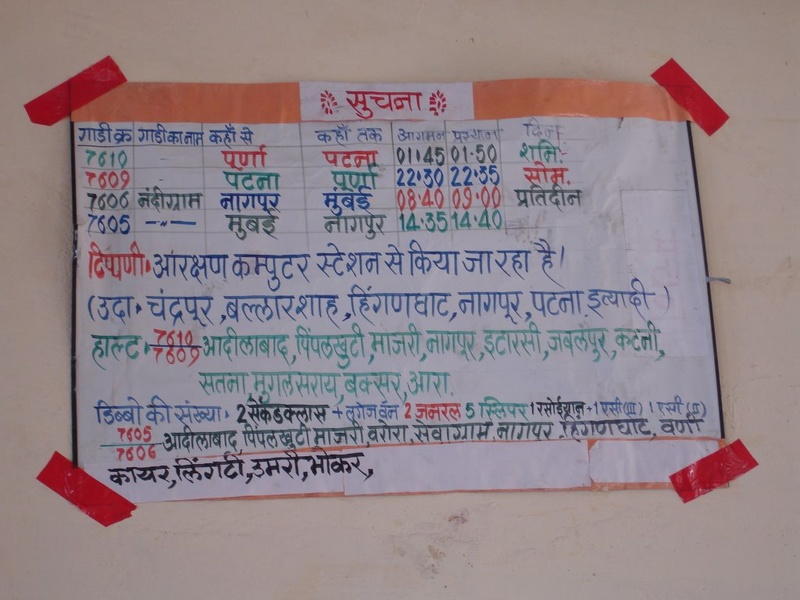 सुचना
गाडी क्र गाडी का नाम कहाँ से कहाँ तक आगमन प्रस्थान दिन
7610 पूर्णा पटना 01:45 01:50 शनि.
7609 पटना पूर्णा 22:30 22:35 सोम.
7606 नंदीग्राम नागपुर मुंबई 08:40 09:00 प्रतिदीन
7605 —〃— मुंबई नागपुर 14:35 14:40
टिप्पणी. आरक्षण कम्पुटर स्टेशन से किया जा रहा है।
(उदा. चंद्रपूर, बल्लारशाह, हिंगणघाट, नागपूर, पटना इत्यादी )
हाल्ट. 7610/7609 आदीलाबाद, पिंपलखुटी, माजरी, नागपूर, इटारसी, जबलपुर, कटनी,
सतना, मुगलसराय, बक्सर, आरा.
डिब्बो की संख्या. 2 सेकंडक्लास + लगेजवॅन 2 जनरल 5 स्लिपर 1 रसोईयान + 1 एसी (III) 1 एसी (II)
7605/7606 आदीलाबाद पिंपलखुटी माजरी, वरोरा, सेवाग्राम, नागपुर, हिंगणघाट, वणी
कायर, लिंगटी, उमरी, भोकर,